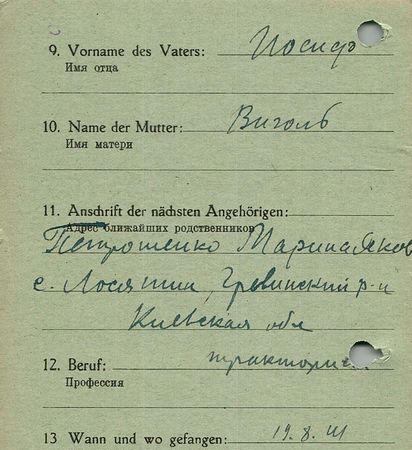 9. Vorname des Vaters: Иосиф
Имя отца
10. Name der Mutter: Виголь
Имя матери
11. Anschrift der nächsten Angehörigen:
Адрес ближайших родственников
Петрошенко Марина Яков
с. Лосятин, Гревинский р-н
Киевская обл
12. Beruf: тракторис
Профессия
13 Wann und wo gefangen: 19. 8. 41